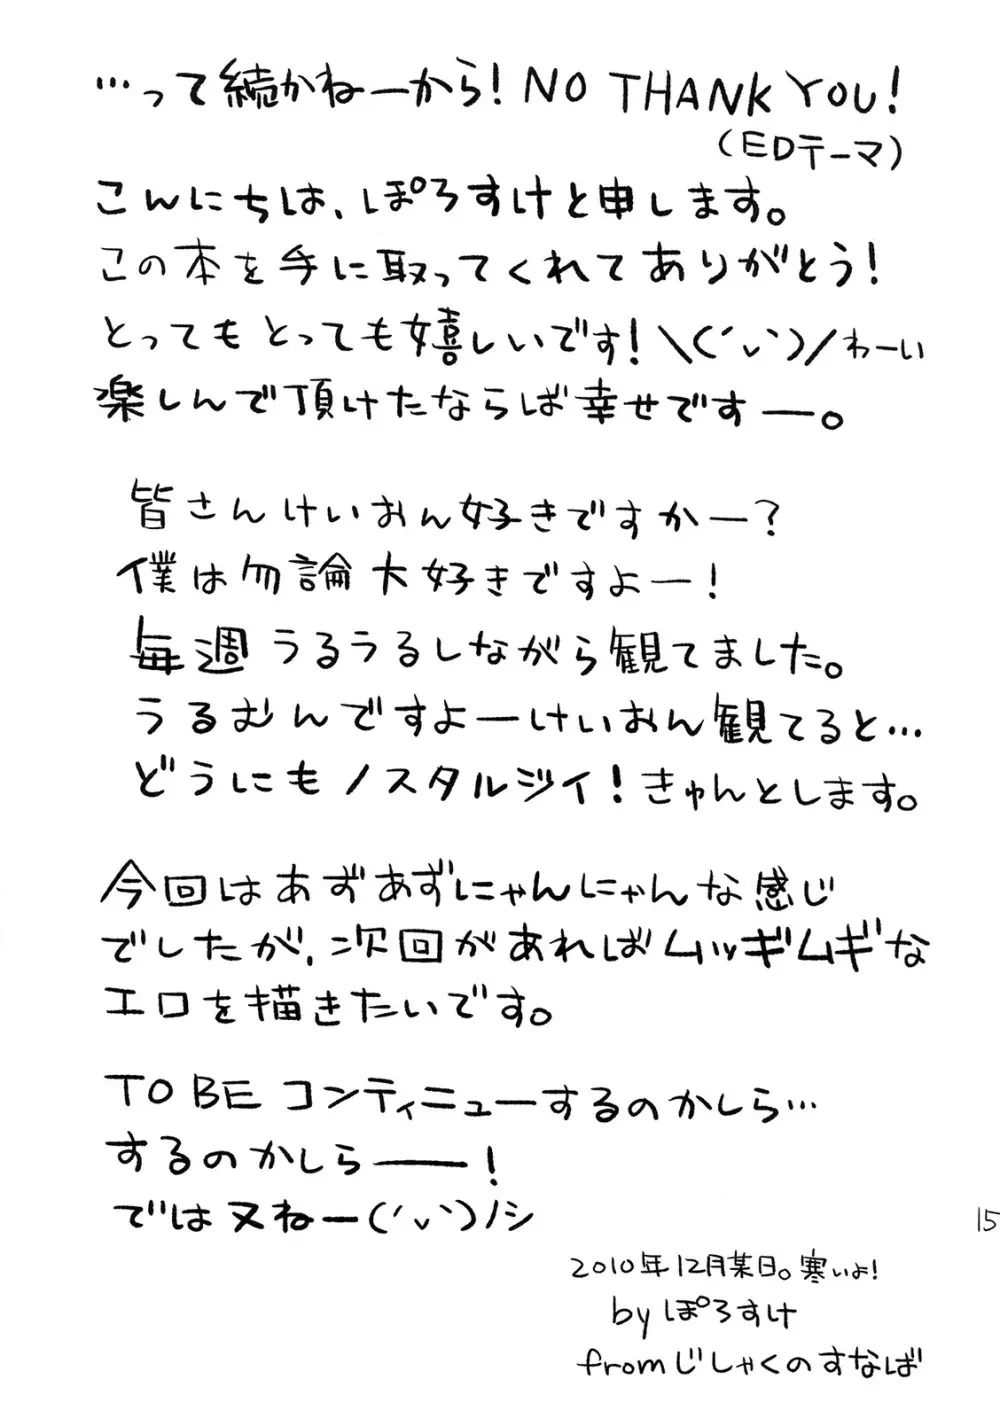 …って続かねーから! NO THANK YOU!
(EDテーマ)
こんにちは、ぽろすけと申します。
この本を手に取ってくれてありがとう!
とってもとっても嬉しいです!＼(´ヽ｀)／わーい
楽しんで頂けたならば幸せですー。
皆さんけいおん好きですかー?
僕は勿論大好きですよー!
毎週うるうるしながら観てました。
うるむんですよーけいおん観てると…
どうにもノスタルジイ!きゅんとします。
今回はあずあずにゃんにゃんな感じ
でしたが、次回があればムッギムギな
エロを描きたいです。
TO BE コンティニューするのかしら…
するのかしらー!
では又ねー(´ヽ｀)ノシ
15
2010年12月某日。寒いよ!
by ぽろすけ
from じしゃくのすなば